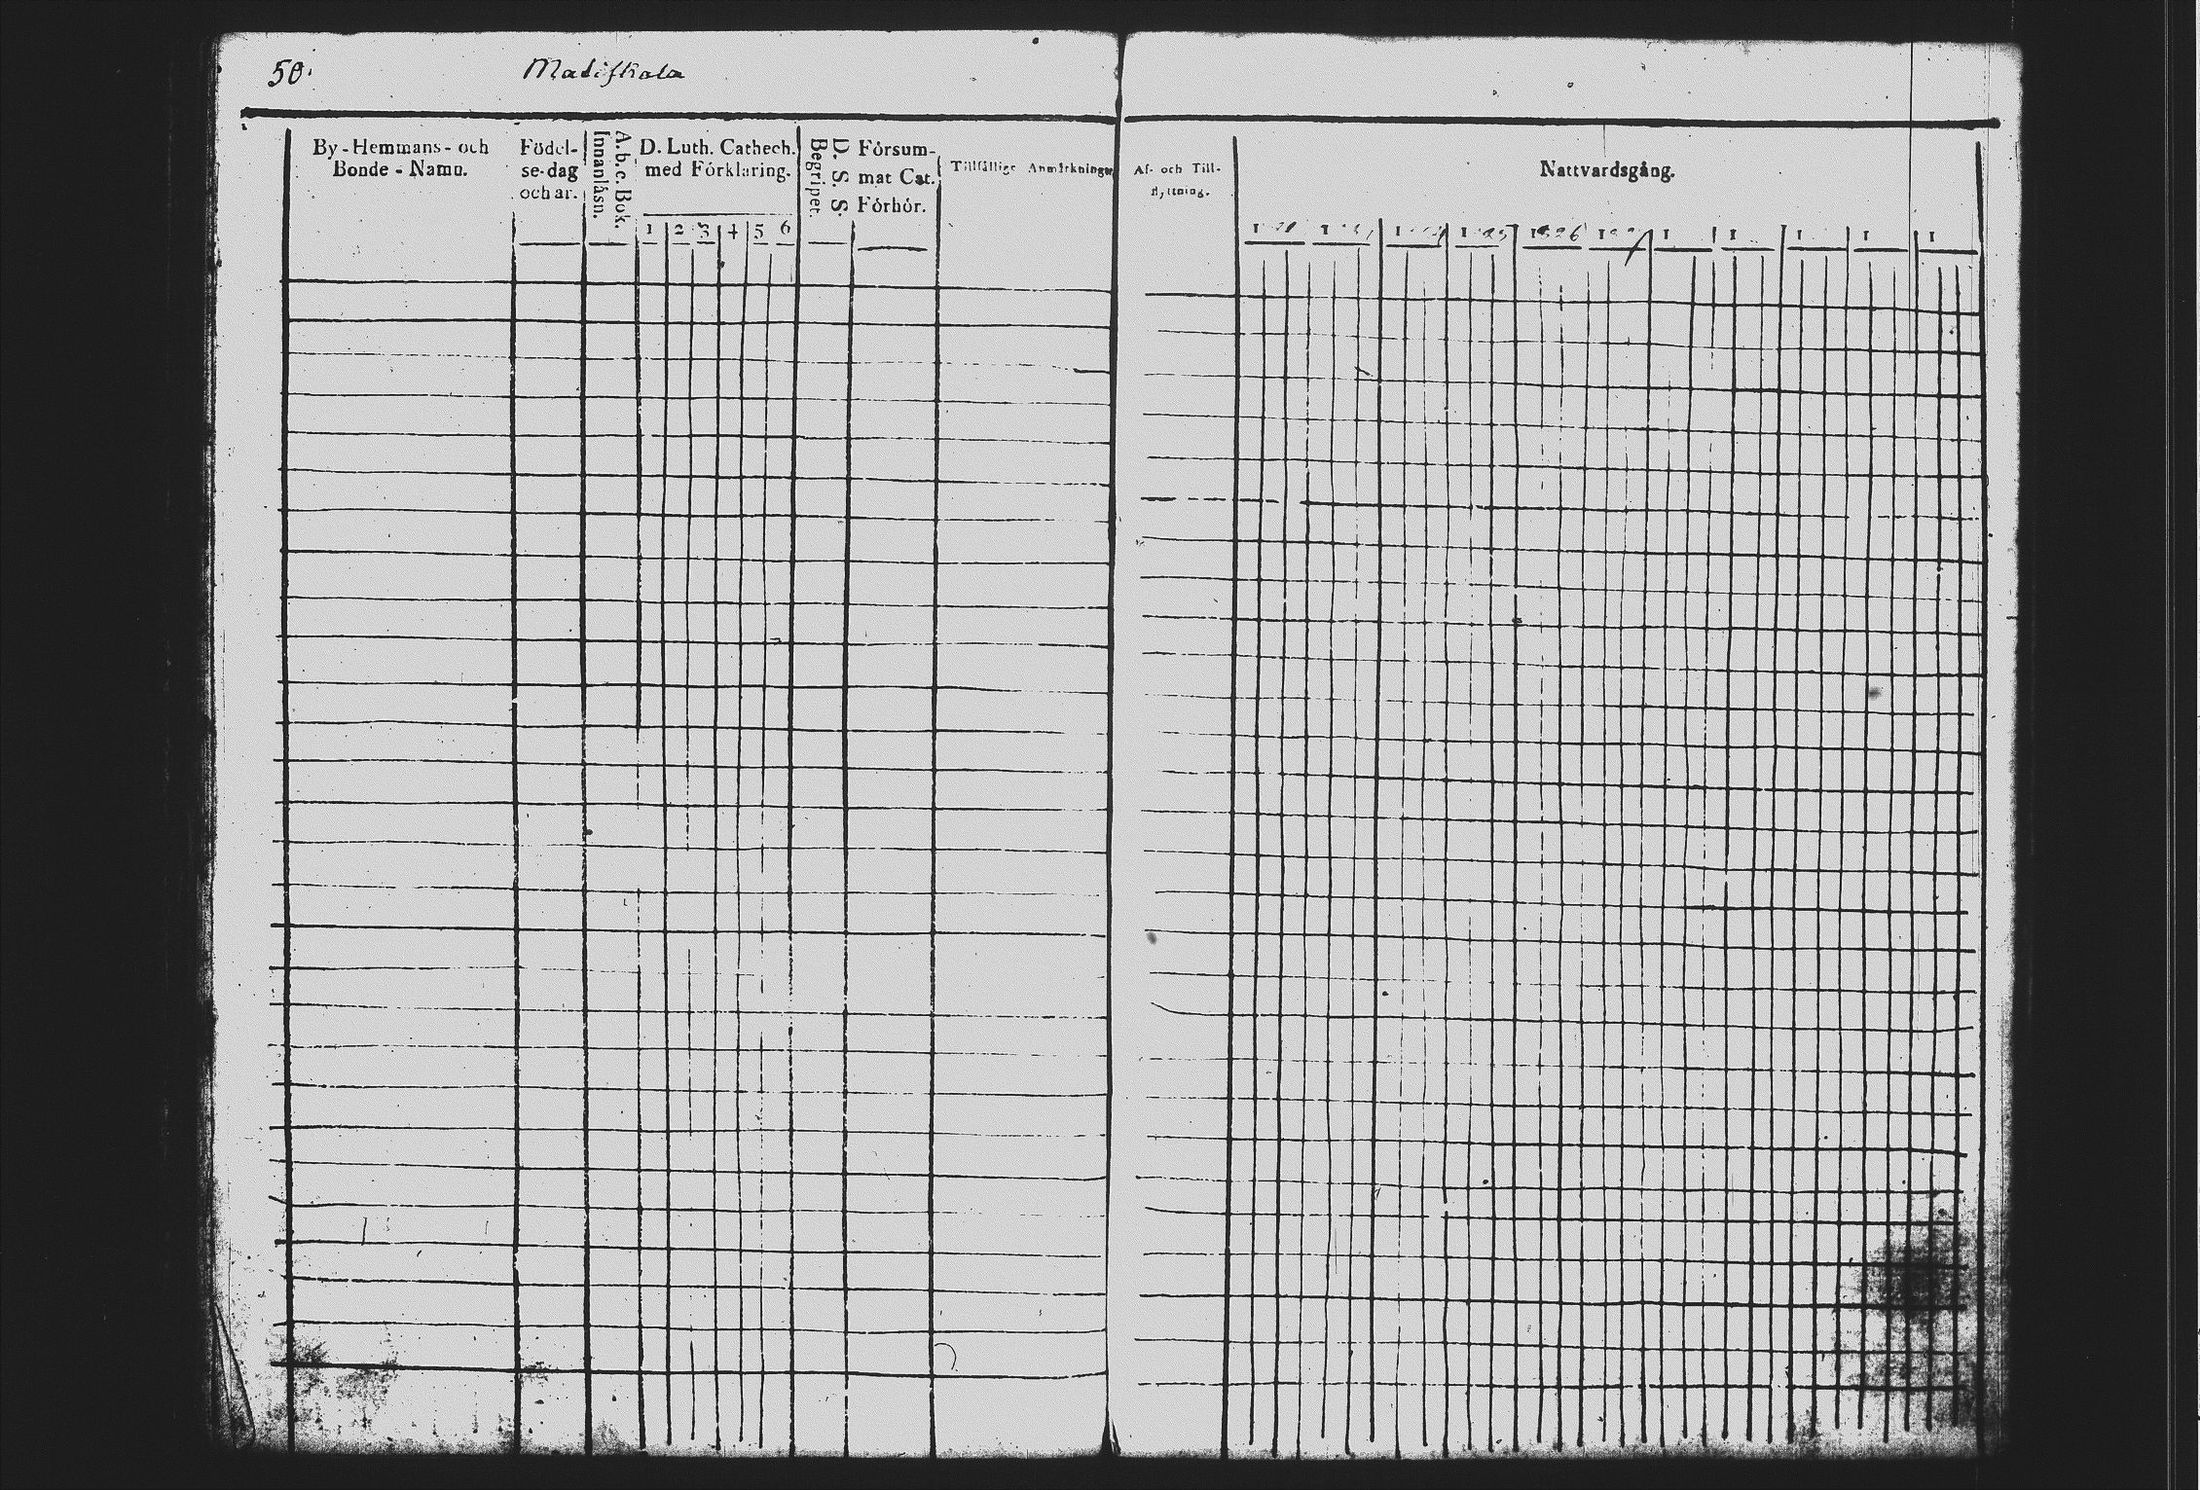 50. Matiskala
By-Hemmans- och
Bonde-Namn.
Födel-
se-dag
och år.
A. b. c. Bok.
Innanläsn.
D. Luth. Cathech.
med Förklaring.
1 2 3 4 5 6
D. S. S.
Begripet.
Försum-
mat Cat.
Förhör.
Tillfällige Anmärkningar
Af- och Till-
flyttning.
Nattvardsgång.
1825 1826 1827 1 1 1 1 1